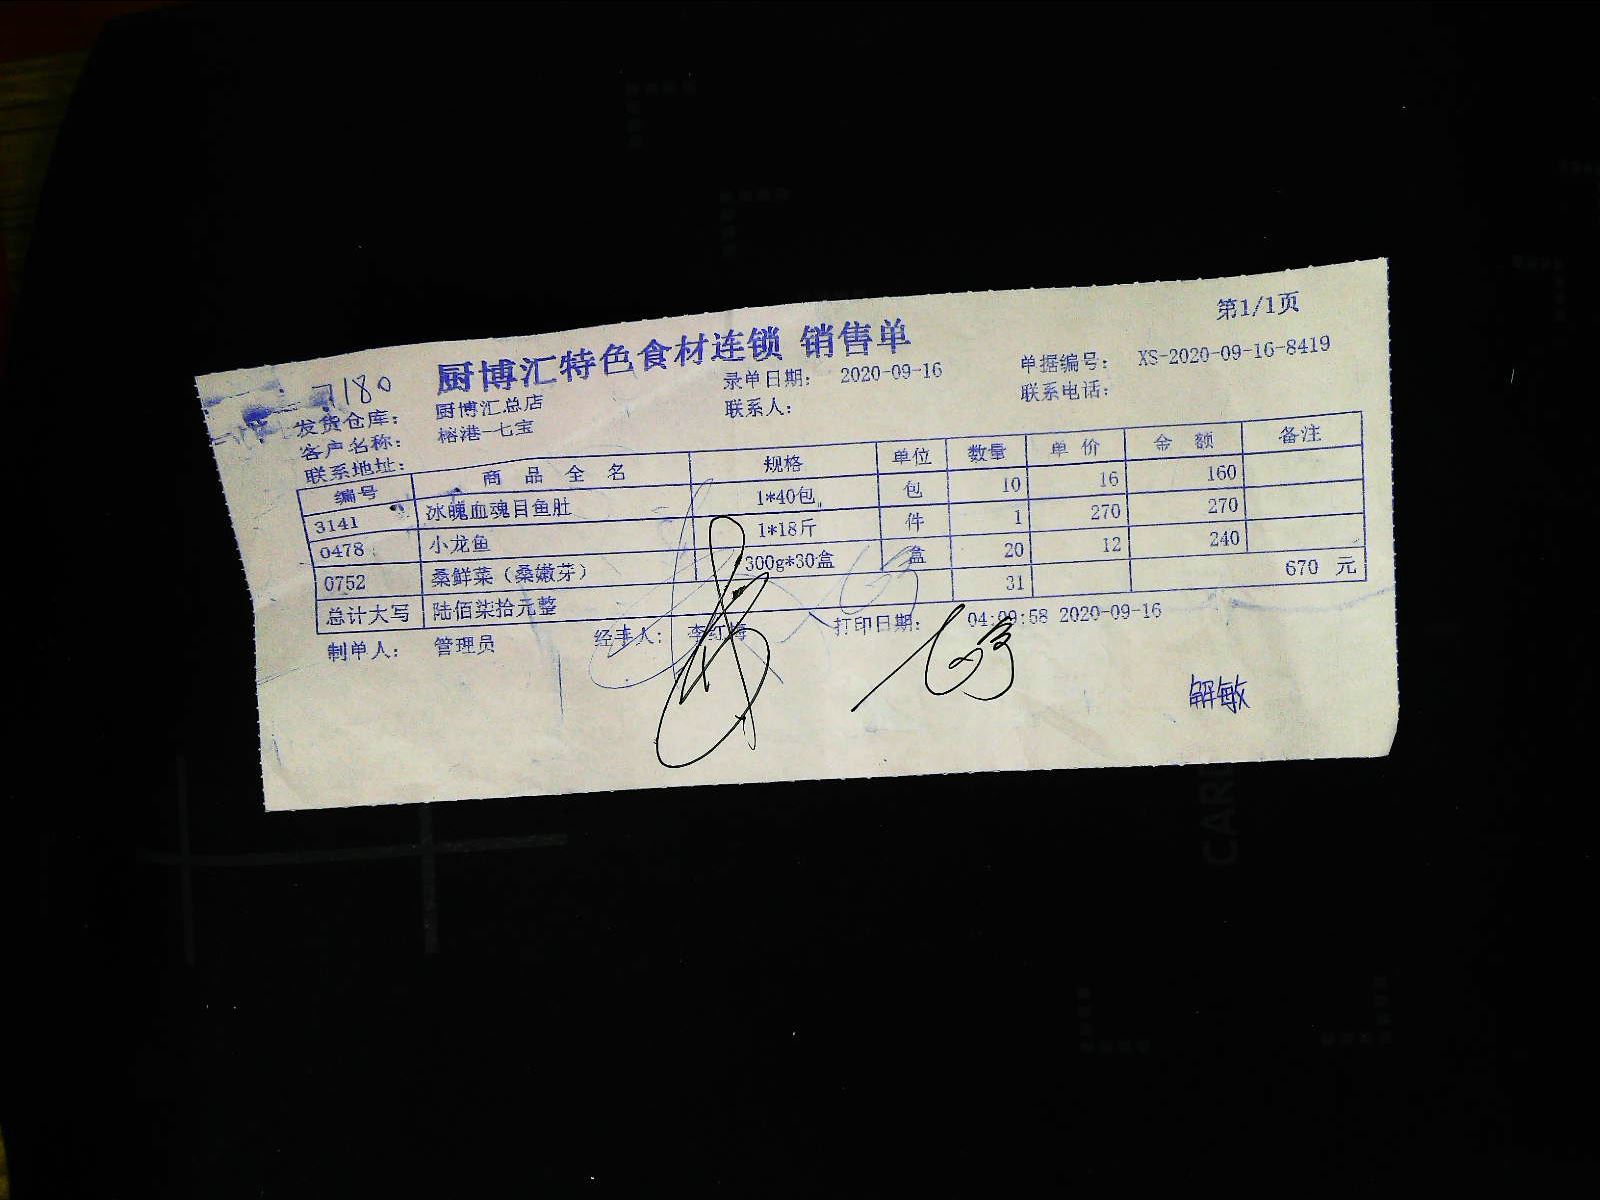 第1/1页
厨博汇特色食材连锁 销售单
7180
发货仓库： 厨博汇总店 录单日期： 2020-09-16 单据编号： XS-2020-09-16-8419
客户名称： 榕港-七宝 联系人： 联系电话：
联系地址：
编号 商品全名 规格 单位 数量 单价 金额 备注
3141 冰魄血魂目鱼肚 1*40包 包 10 16 160
0478 小龙鱼 1*18斤 件 1 270 270
0752 桑鲜菜（桑嫩芽） 300g*30盒 盒 20 12 240
总计大写 陆佰柒拾元整 31 670 元
制单人： 管理员 经手人： 李红梅 打印日期： 04:09:58 2020-09-16
解敏